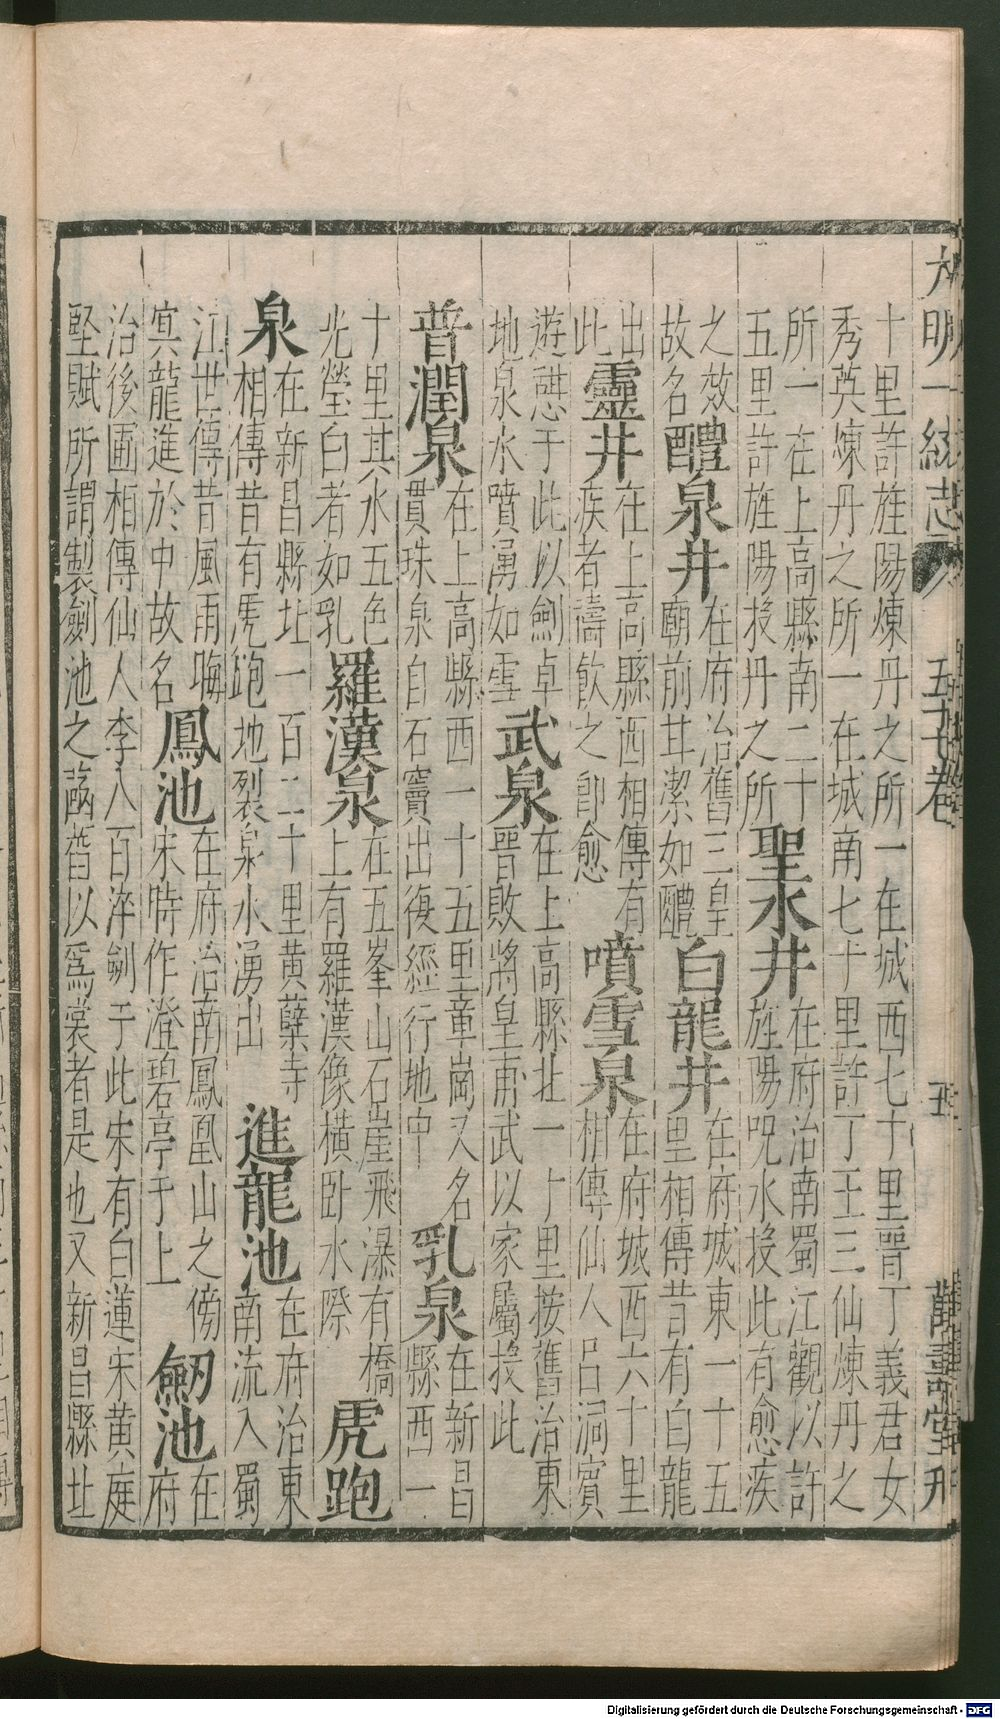 大明一統志 五十七卷 五 萬壽堂刊
十里許旌陽煉丹之所一在城西七十里晉丁義君女
秀英煉丹之所一在城南七十里許丁王三仙煉丹之
所一在上高縣南二十
五里許旌陽投丹之所
聖水井
在府治南蜀江觀以許
旌陽呪水投此有愈疾
之效
故名
醴泉井
在府治舊三皇
廟前甘潔如醴
白龍井
在府城東一十五
里相傳昔有白龍
出
此
靈井
在上高縣西相傳有
疾者禱飲之即愈
噴雪泉
在府城西六十里
相傳仙人呂洞賓
遊憇于此以劍卓
地泉水噴湧如雪
武泉
在上高縣北一十里按舊治東
晉敗將皇甫武以家屬投此
普潤泉
在上高縣西一十五里章崗又名
貫珠泉自石竇出復經行地中
乳泉
在新昌
縣西一
十里其水五色
光瑩白者如乳
羅漢泉
在五峯山石崖飛瀑有橋
上有羅漢像橫卧水際
虎跑
泉
在新昌縣北一百二十里黃蘗寺
相傳昔有虎跑地裂泉水湧出
進龍池
在府治東
南流入蜀
江世傳昔風雨晦
寘龍進於中故名
鳳池
在府治南鳳凰山之傍
宋時作澄碧亭于上
劒池
在
府
治後圃相傳仙人李八百淬劍于此宋有白蓮宋黃庭
堅賦所謂製劍池之菡萏以爲裳者是也又新昌縣北
Digitalisierung gefördert durch die Deutsche Forschungsgemeinschaft - DFG